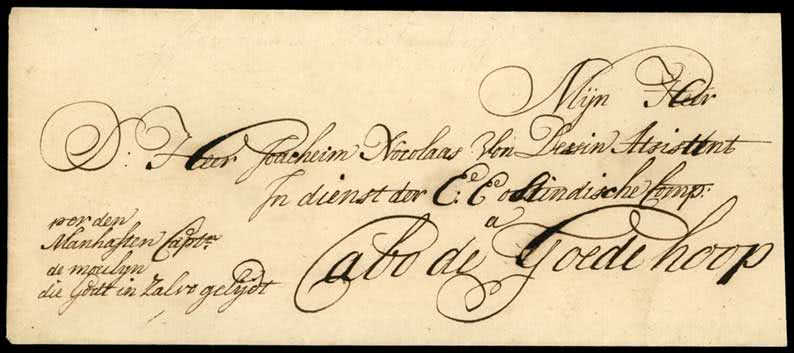 Mijn Heer
D: Heer Joacheim Nocolaas Von Dessin Atsistent
In dienst der E: E Oostindische Comp:
a
Cabo de Goede hoop
per den
Manhaften Capt:n
de moulyn
die Godt in Salvo gelydt